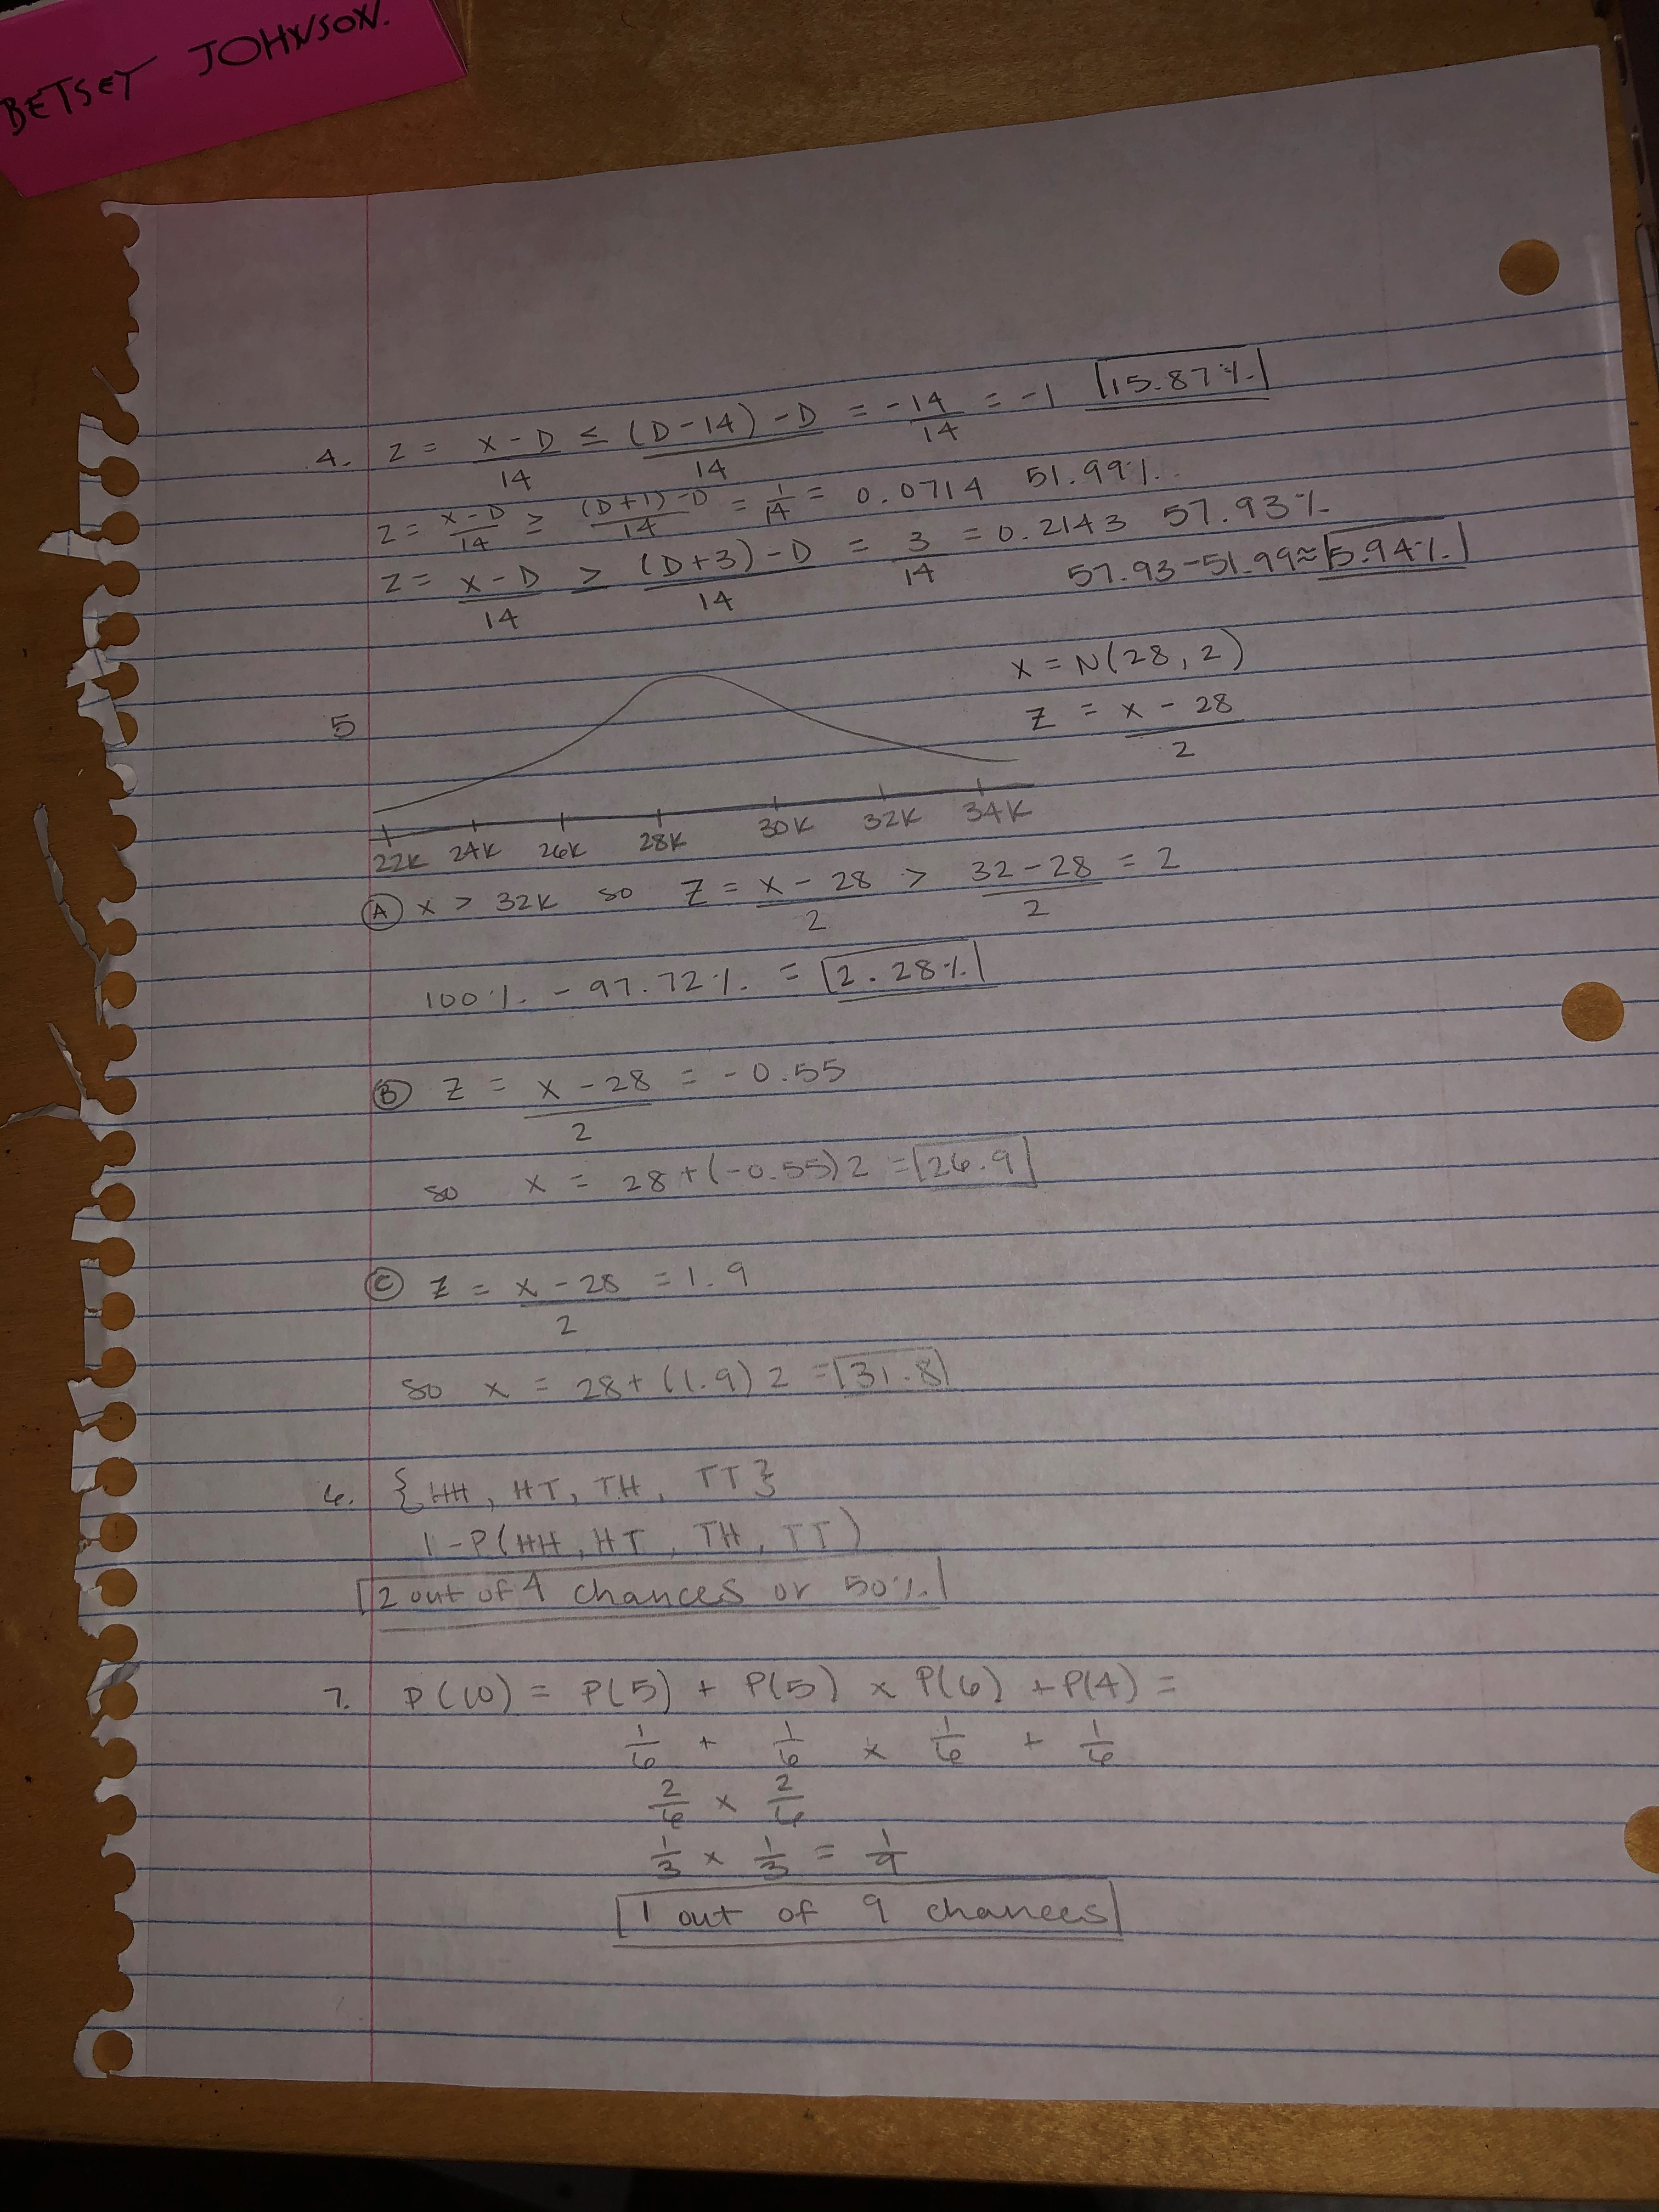 BETSEY JOHNSON.
4. Z = X - D / 14 ≤ (D - 14) - D / 14 = -14 / 14 = -1 15.87%
Z = X - D / 14 ≥ (D + 1) - D / 14 = 1 / 14 = 0.0714 51.99%
Z = X - D / 14 > (D + 3) - D / 14 = 3 / 14 = 0.2143 57.93%
57.93 - 51.99 ≈ 5.94%
5
X = N(28, 2)
Z = X - 28 / 2
22K 24K 26K 28K 30K 32K 34K
A X > 32K so Z = X - 28 / 2 > 32 - 28 / 2 = 2
100% - 97.72% = 2.28%
B Z = X - 28 / 2 = -0.55
so X = 28 + (-0.55) 2 = 26.9
C Z = X - 28 / 2 = 1.9
so X = 28 + (1.9) 2 = 31.8
6. {HH, HT, TH, TT}
1 - P(HH, HT, TH, TT)
2 out of 4 chances or 50%
7. P(10) = P(5) + P(5) x P(6) + P(4) =
1/6 + 1/6 x 1/6 + 1/6
2/6 x 2/6
1/3 x 1/3 = 1/9
1 out of 9 chances